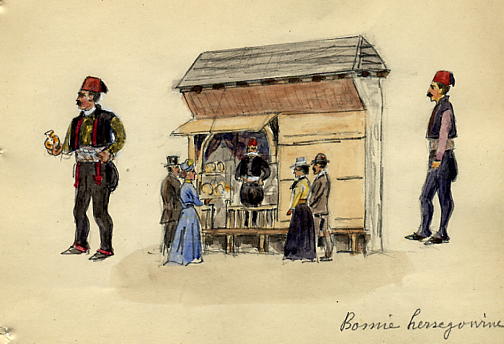 Bosnie hersegowine